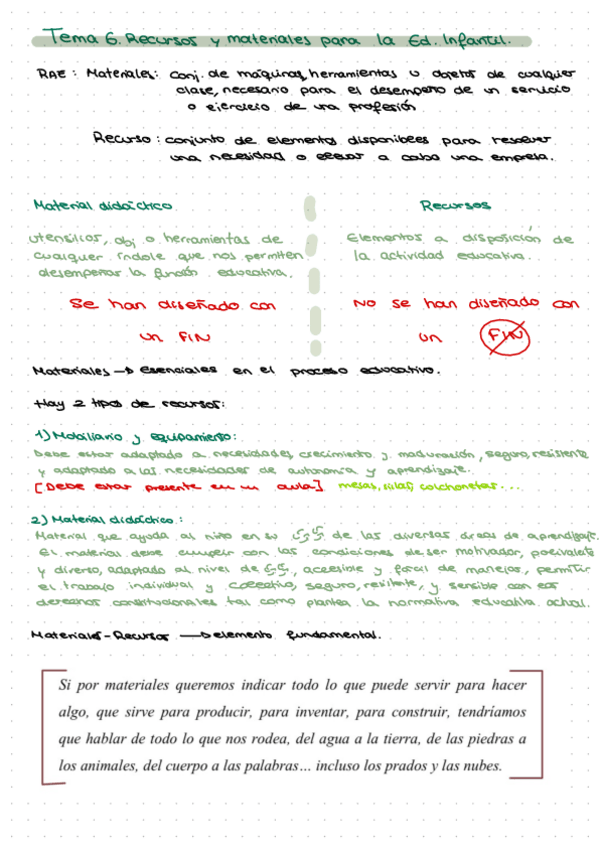 Tema 6. Recursos y materiales para la Ed. Infantil.
RAE: Materiales: conj. de máquinas, herramientas u objetos de cualquier
clase, necesario para el desempeño de un servicio
o ejercicio de una profesión
Recurso: conjunto de elementos disponibles para resolver
una necesidad o llevar a cabo una empresa.
Material didáctico
Recursos
utensilios, obj o herramientas de
cualquier índole que nos permiten
desempeñar la función educativa.
Elementos a disposición de
la actividad educativa.
Se han diseñado con
un FIN
NO se han diseñado con
un FIN
Materiales → Esenciales en el proceso educativo.
Hay 2 tipos de recursos:
1) Mobiliario y equipamiento:
Debe estar adaptado a necesidades, crecimiento y maduración, seguro, resistente
y adaptado a las necesidades de autonomía y aprendizaje.
[Debe estar presente en un aula] mesas, sillas, colchonetas...
2) Material didáctico:
Material que ayuda al niño en su de las diversas áreas de aprendizaje.
El material debe cumplir con las condiciones de ser motivador, polivalente
y diverso, adaptado al nivel de, accesible y fácil de manejar, permitir
el trabajo individual y colectivo, seguro, resistente, y sensible con los
derechos constitucionales tal como plantea la normativa educativa actual.
Materiales-Recursos → elemento fundamental.
Si por materiales queremos indicar todo lo que puede servir para hacer
algo, que sirve para producir, para inventar, para construir, tendríamos
que hablar de todo lo que nos rodea, del agua a la tierra, de las piedras a
los animales, del cuerpo a las palabras… incluso los prados y las nubes.